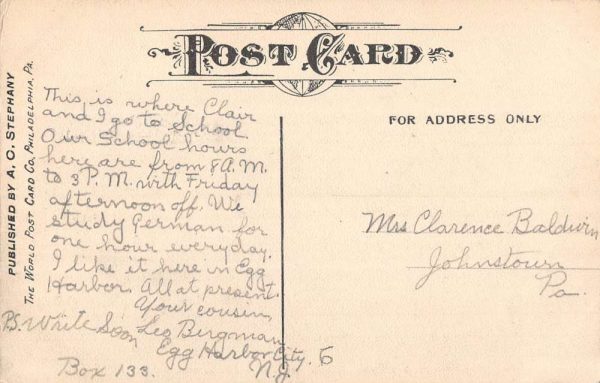 POST CARD
PUBLISHED BY A. C. STEPHANY
THE WORLD POST CARD CO, PHILADELPHIA, PA.
FOR ADDRESS ONLY
This is where Clair
and I go to School.
Our School hours
here are from 8 A.M.
to 3 P.M. with Friday
afternoon off. We
study German for
one hour everyday.
I like it here in Egg
Harbor. All at present.
Your cousin,
Leo Bergman
Egg Harbor City. 6
N.J.
P.S. Write Soon
Box 133.
Mrs Clarence Baldwin
Johnstown
Pa.